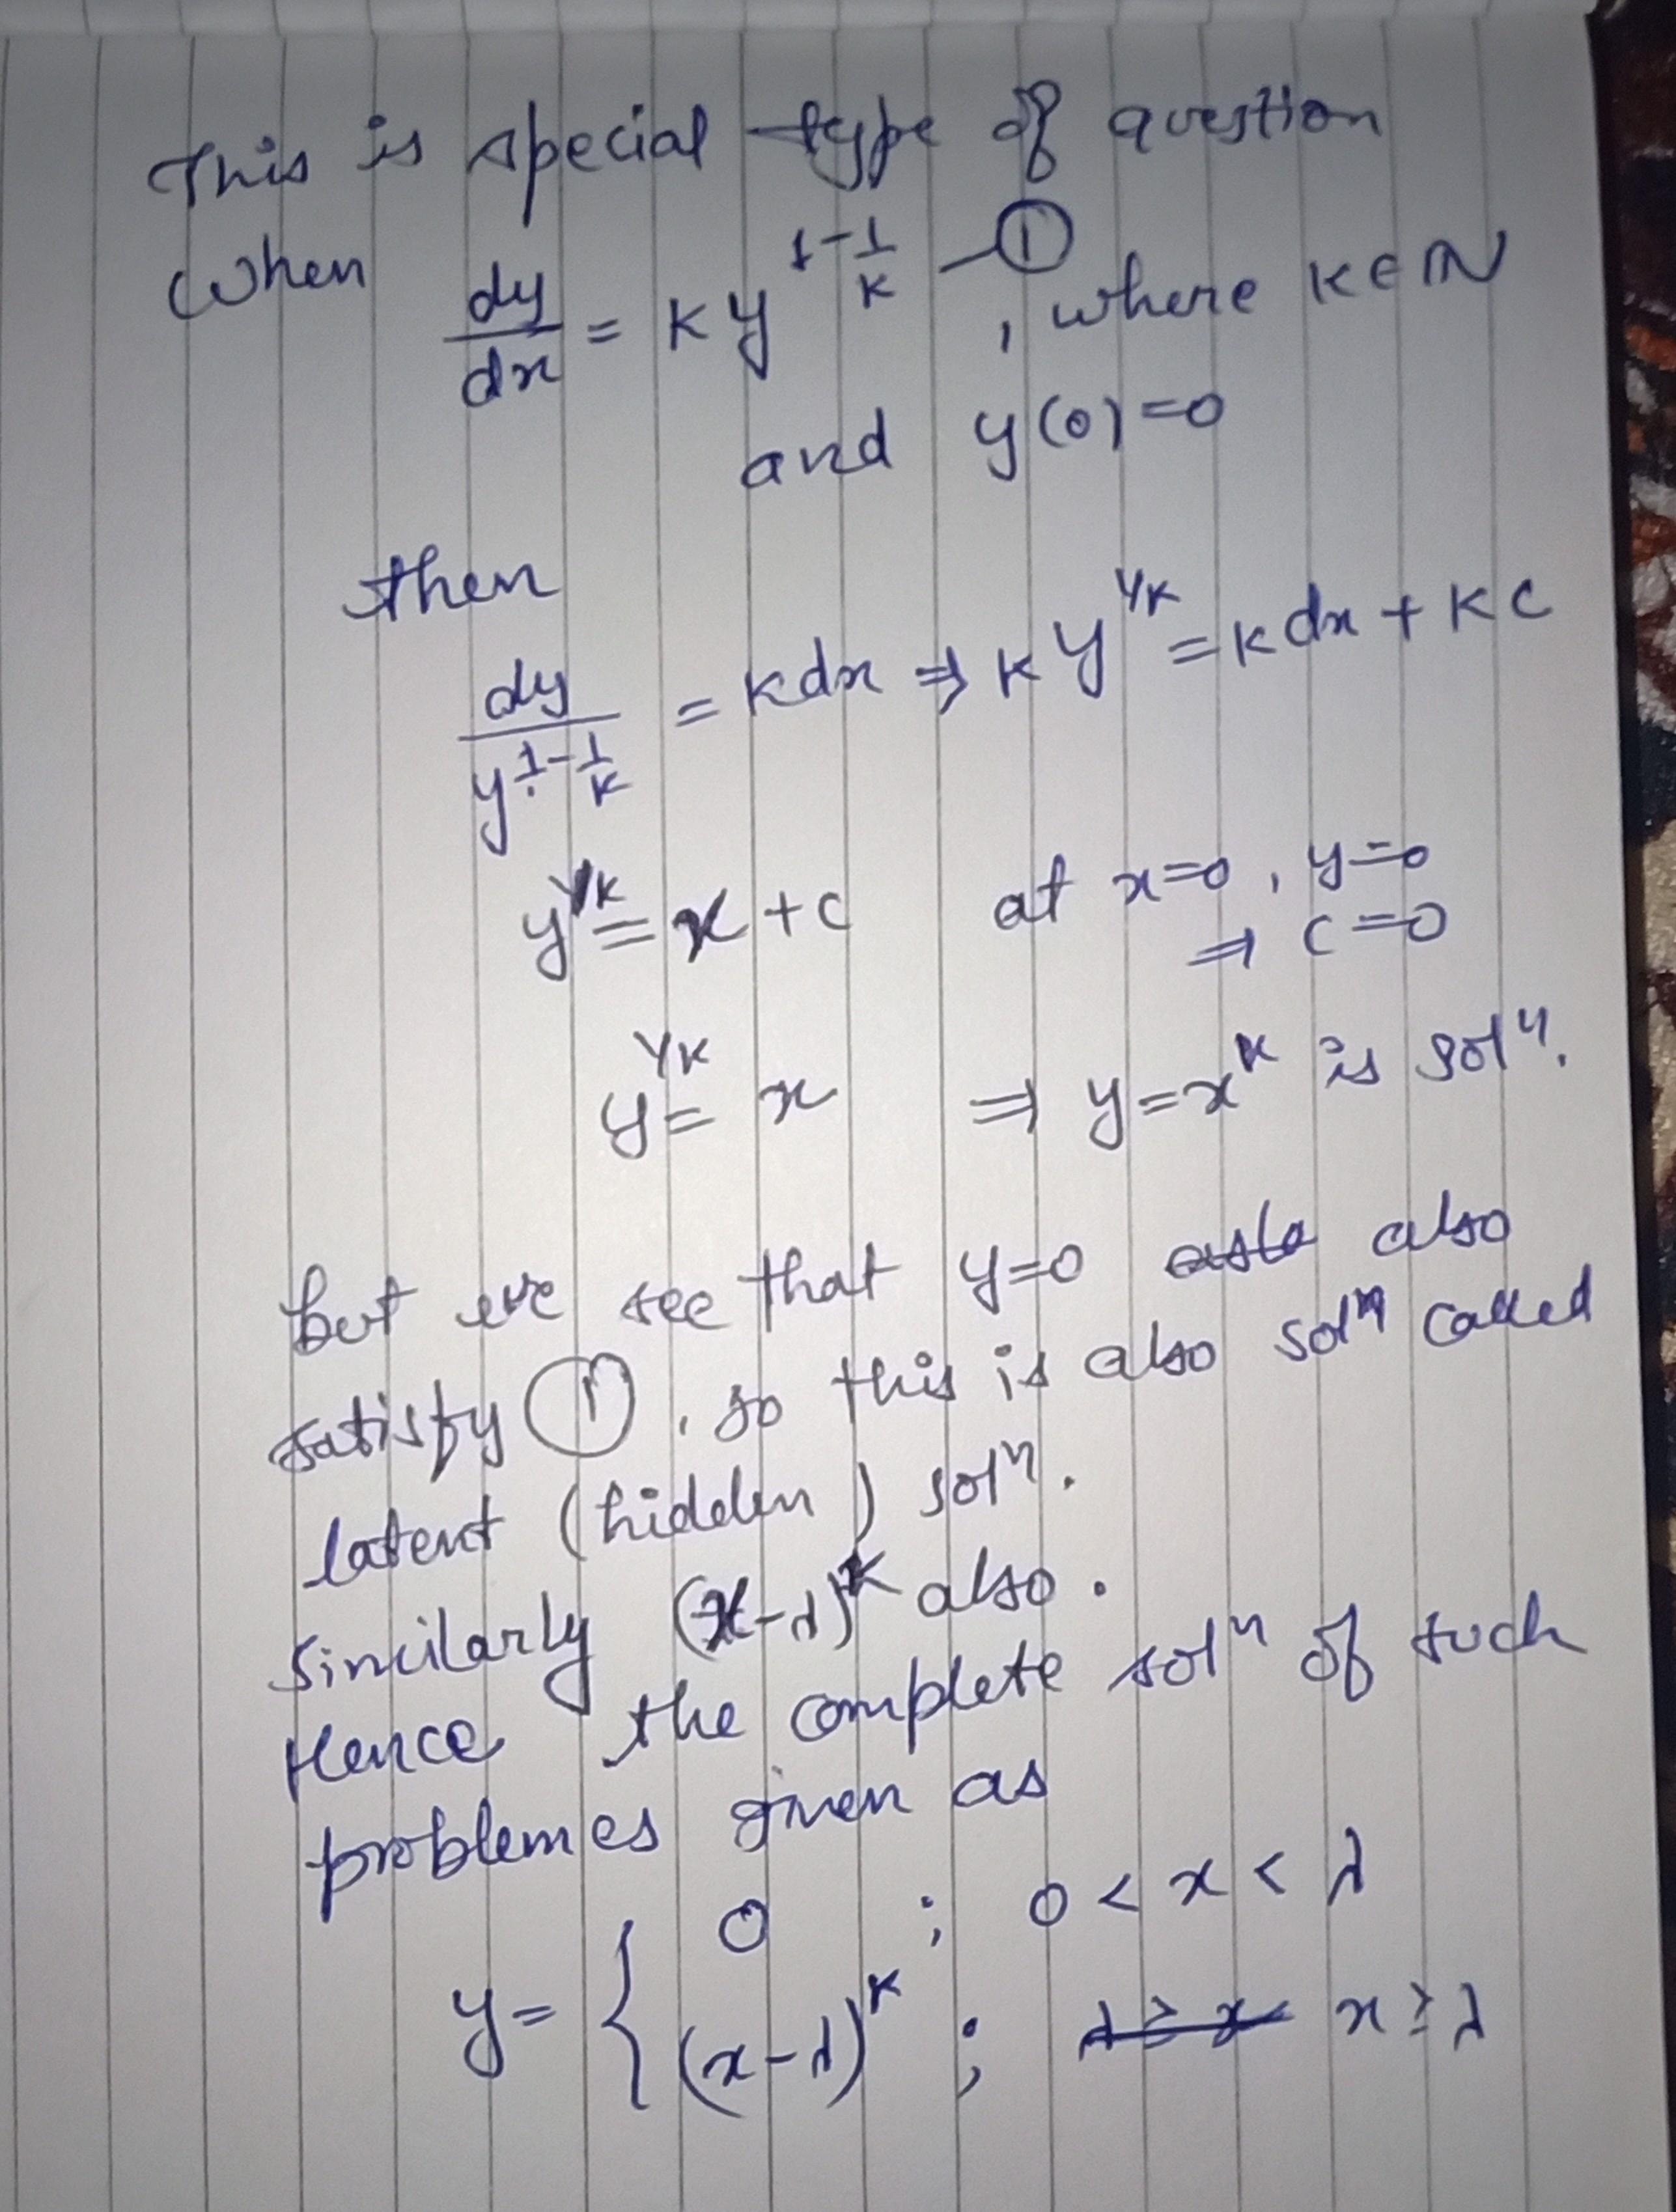 This is special type of question
When dy/dx = K y^{1-1/K} — ① , where K ∈ ℕ
and y(0)=0
then
dy/y^{1-1/K} = K dx ⇒ K y^{1/K} = K dx + K C
y^{1/K} = x + C at x=0, y=0
⇒ C=0
y^{1/K} = x ⇒ y = x^K is solⁿ.
but we see that y=0 also
satisfy ①, so this is also solⁿ called
latent (hidden) solⁿ.
Similarly (x-λ)^K also.
Hence the complete solⁿ of such
problemes given as
y = { 0 ; 0 < x < λ
(x-λ)^K ; x ≥ λ